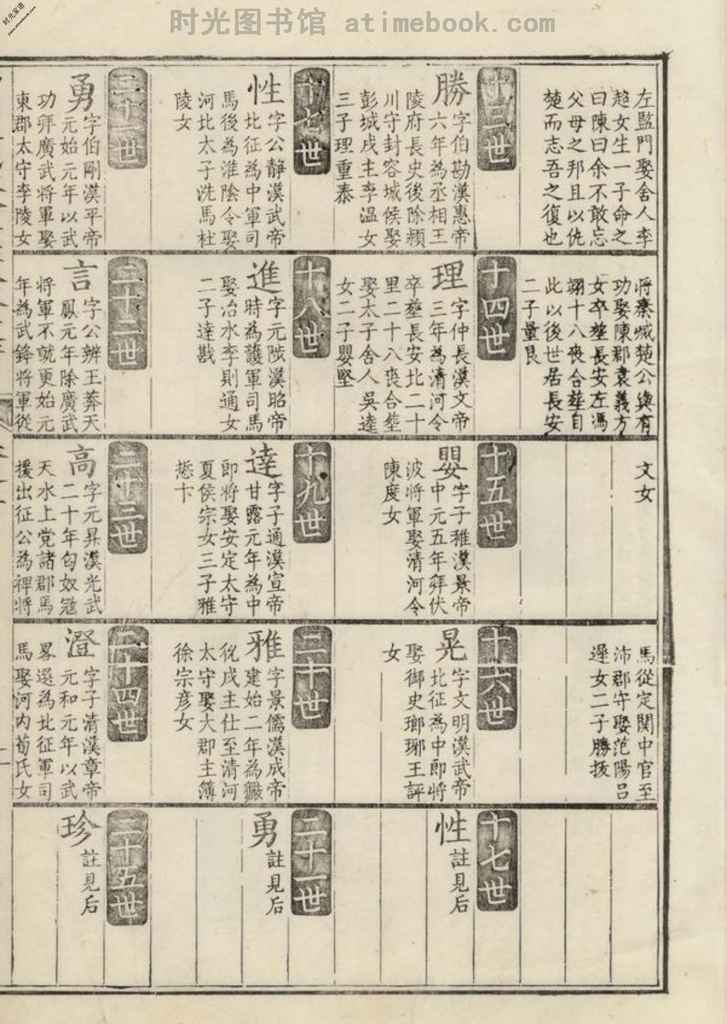 时光图书馆 atimebook.com
左監門娶舍人李
趙女生一子命之
曰陳曰余不敢忘
父母之邦且以仇
楚而志吾之復也
十三世
勝 字伯勘漢惠帝
六年為丞相王
陵府長史後除潁
川守封容城侯娶
彭城戌主李溫女
三子理重泰
十七世
性 字公靜漢武帝
北征為中軍司
馬後為淮陰令娶
河比太子洗馬杜
陵女
二十一世
勇 字伯剛漢平帝
元始元年以武
功拜廣武將軍娶
東郡太守李陵女
將秦城楚公與有
功娶陳郡袁義方
女卒塟長安左馮
翊十八喪合塟自
此以後世居長安
二子量艮
十四世
理 字仲長漢文帝
三年為清河令
卒塟長安北二十
里二十八喪合塟
娶太子舍人吳達
女二子嬰堅
十八世
進 字元陔漢昭帝
時為護軍司馬
娶冶水李則通女
二子達戡
二十二世
言 字公辨王莽天
鳳元年除廣武
將軍不就更始元
年為武鋒將軍從
文女
十五世
嬰 字子雅漢景帝
中元五年拜伏
波將軍娶清河令
陳度女
十九世
達 字子通漢宣帝
甘露元年為中
即將娶安定太守
夏侯宗女三子雅
惎卞
二十三世
高 字元昇漢光武
二十年匈奴冦
天水上党諸郡馬
援出征公為裨將
馬從定関中官至
沛郡守娶范陽吕
遲女二子勝拔
十六世
晃 字文明漢武帝
北征為中即將
娶御史瑯琊王評
女
二十世
雅 字景儒漢成帝
建始二年為
倪戌主仕至清河
太守娶大郡主簿
徐宗彥女
二十四世
澄 字子清漢章帝
元和元年以武
畧還為北征軍司
馬娶河内荀氏女
十七世
性 註見后
二十一世
勇 註見后
二十五世
珍 註見后